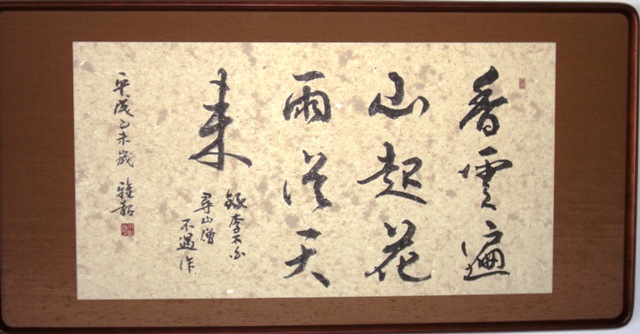 香雲遍
山起花
雨從天
来
録李太白
尋山僧
不遇作
平成乙未歳 雅韶